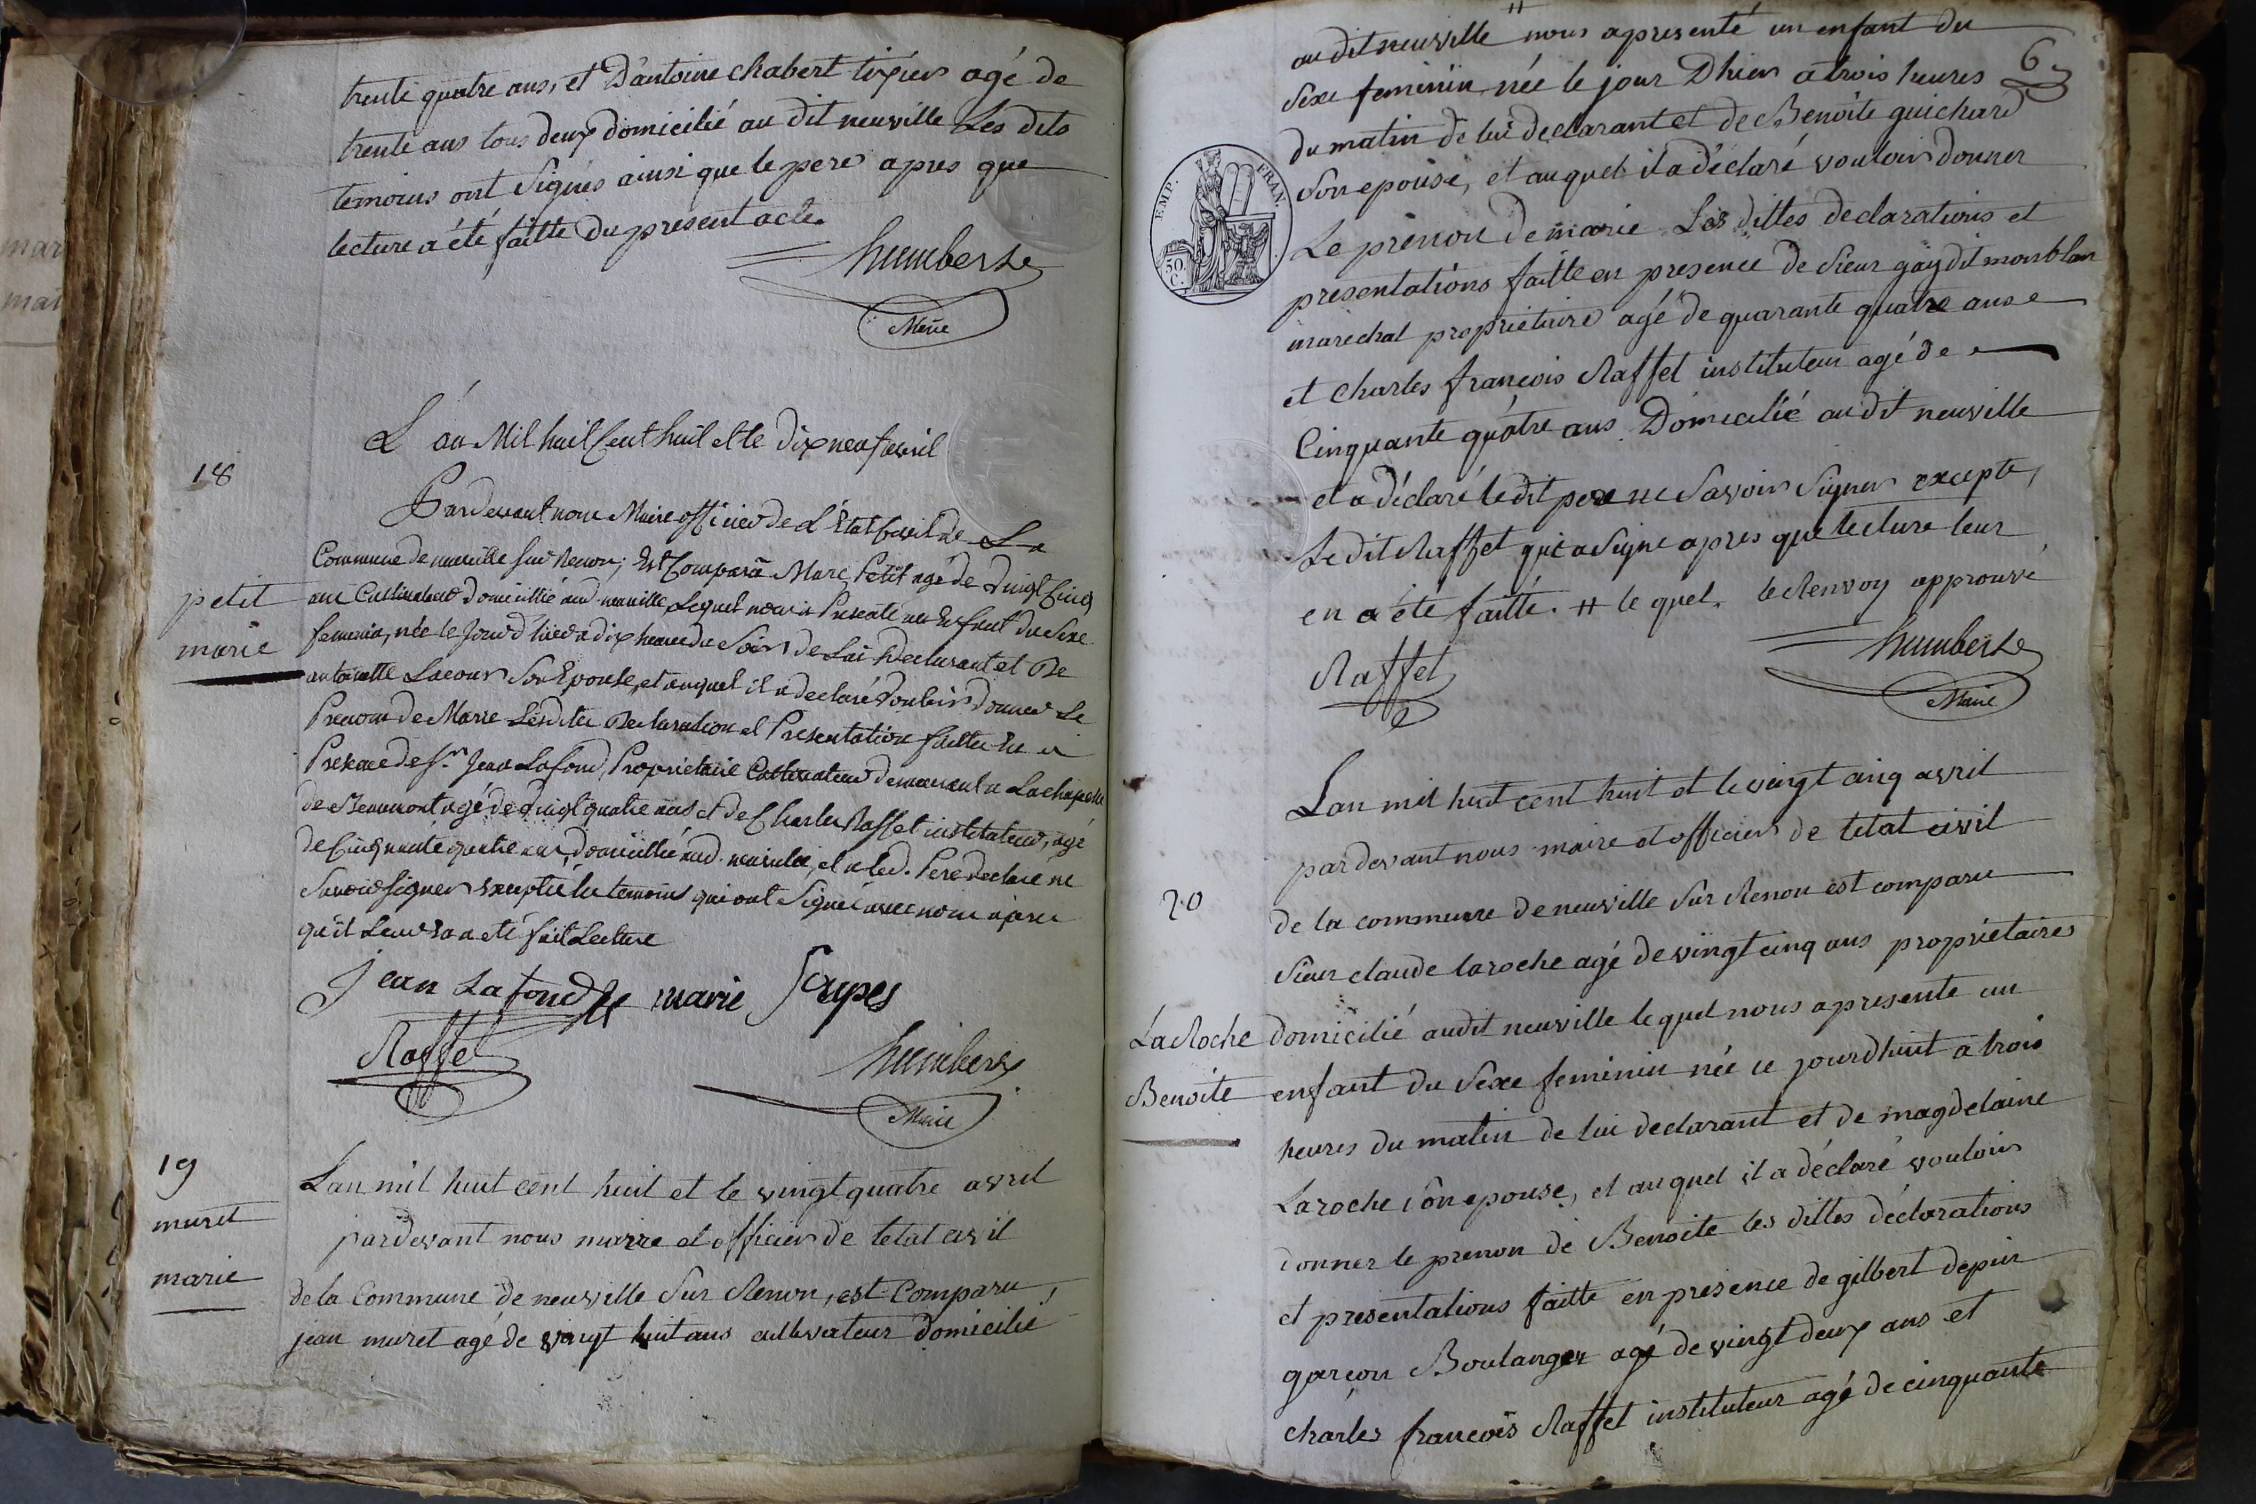 trente quatre ans, et D'antoine chabert tixier agé de
trente ans tous deux domicilié au dit neuville Les dits
temoins ont signés ainsi que le pere apres que
lecture a été faitte du present acte.
humbert
Maire
18
L'an Mil huit Cent huit et le dix neuf avril
Pardevant nous Maire officier de L'État Civil de La
Commune de neuville sur Renon; Est Comparu Marc Petit agé de vingt Cinq
petit
ans Cultivateur domicillié aud. neuville, Lequel nous a Presenté un Enfant du Sexe
feminin, née le Jour d'hier a dix heures du Soir de Lui Declarant et De
marie
antoinette Lacour Son Epouse, et auquel il a declaré Vouloir donner Le
Prenom de Marie Lesdites Declaration et Presentation faittes En
Presence de Sr. Jean Lafond, Proprietaire Cultivateur demeurant a La chapelle
de Beaumont agé de vingt quatre ans et de Charles Raffet instituteur, agé
de Cinquante quatre ans, domicillié aud. neuville, et a led. Pere declaré ne
Savoir signer Excepté les temoins qui ont Signé avec nous apres
qu'il Leur En a eté fait Lecture
jean Lafond
marie
Raffet
humbert
Maire
19
Lan mil huit cent huit et le vingt quatre avril
muret
pardevant nous maire et officier de letat civil
marie
de la Commune de neuville Sur Renon, est Comparu,
jean muret agé de vingt huit ans cultivateur domicilié
au dit neuville # nous a presenté un enfant du
6
Sexe feminin née le jour D'hier a trois heures
du matin de lui declarant et de Benoite guichard
EMP. FRAN.
50 C.
Son epouse, et au quel il a déclaré vouloir donner
Le prénon de marie Les dittes declarations et
presentations faitte en presence de Sieur gay dit monblan
marechal proprietaire agé de quarante quatre ans
et Charles françois Raffet instituteur agé de
Cinquante quatre ans Domicilié au dit neuville
et a déclaré ledit pere ne Savoir Signer excepte,
Le dit Raffet qui a Signe apres que lecture leur
en a été faitte. # le quel. le Renvoy approuvé
Raffet
humbert
Maire
Lan mil huit cent huit et le vingt cinq avril
pardevant nous maire et officier de letat civil
20
de la commune de neuville Sur Renon est comparu
Sieur claude laroche agé de vingt cinq ans proprietaires
LaRoche
domicilié audit neuville le quel nous a presente un
Benoite
enfant du Sexe feminin née ce jourdhuit a trois
heures du matin de lui declarant et de magdelaine
Laroche Son epouse, et au quel il a déclaré vouloir
donner le prenon de Benoite les dittes déclarations
et presentations faitte en presence de gilbert depin
garçon Boulanger agé de vingt deux ans et
charles françois Raffet instituteur agé de cinquante